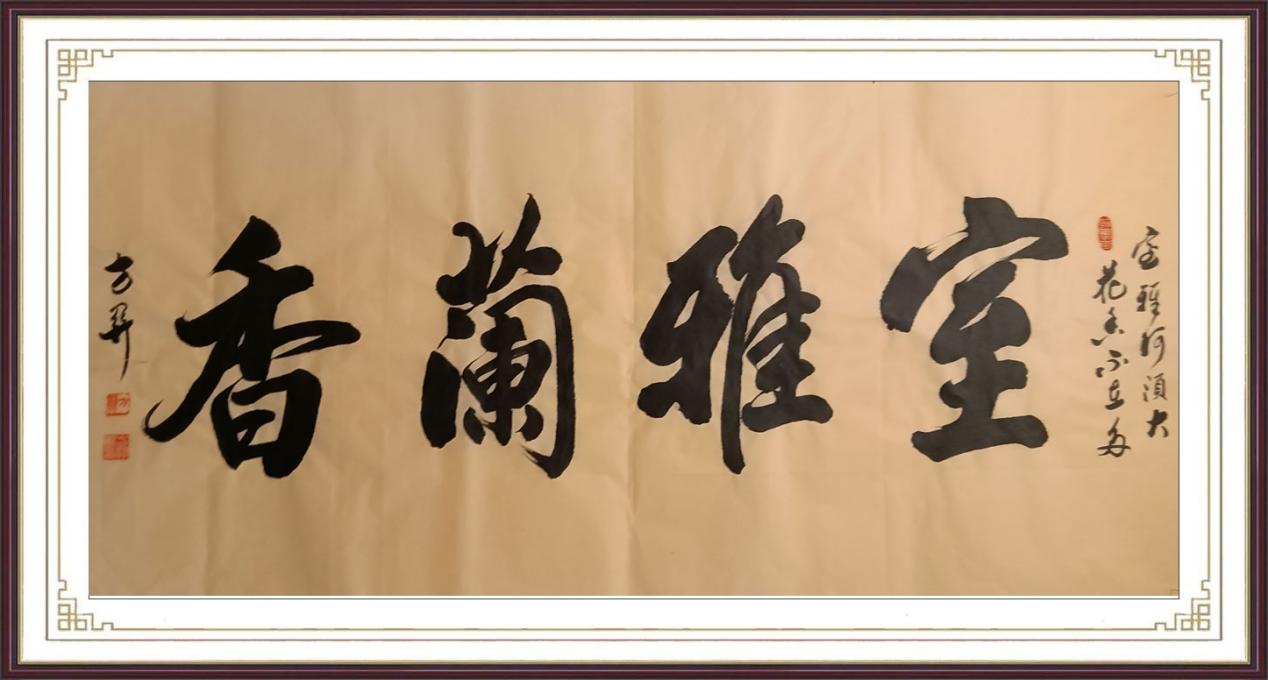 室雅何須大
花香不在多
室雅蘭香
方昇